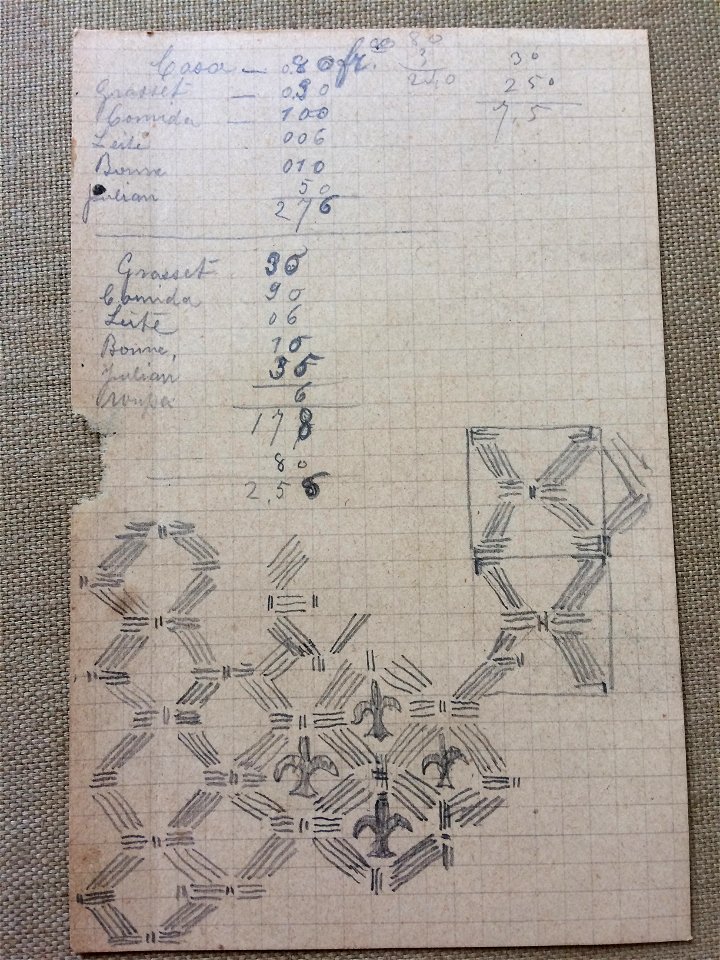 Casa — 0.80 fr. 00
80
3
240
30
250
7,5
Grasset — 030
Comida — 100
Leite 006
Bonne 010
Julian 50
276
Grasset 30
Comida 90
Leite 06
Bonne, 10
Julian
roupa 6
178
80
2,58